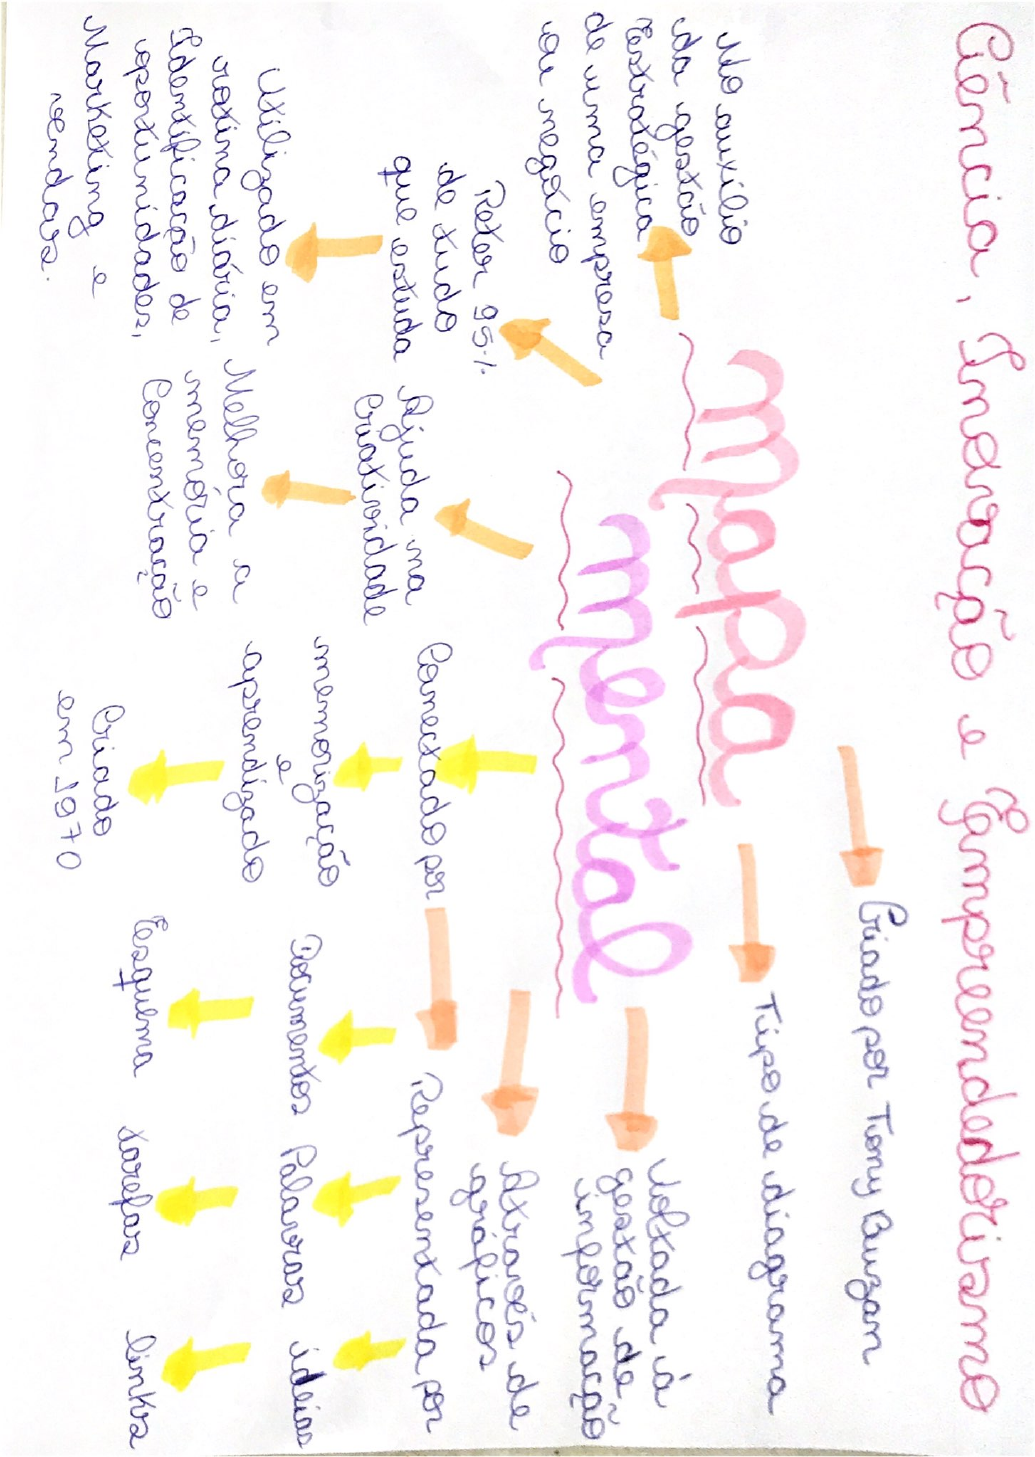 Ciência, Inovação e Empreendedorismo
Mapa
mental
Criado por Tony Buzan
Tipo de diagrama
Voltada à
gestão de
informação
Através de
gráficos
Representada por
Documentos
Palavras
idéias
Esquema
tarefas
links
Conectado por
memorização
e
aprendizado
Criado
em 1970
No auxílio
da gestão
Estratégica
de uma empresa
ou negócio
Reter 95%
de tudo
que estuda
Utilizado em
rotina diária,
Identificação de
oportunidades,
Marketing e
vendas.
Ajuda na
Criatividade
Melhora a
memória e
Concentração